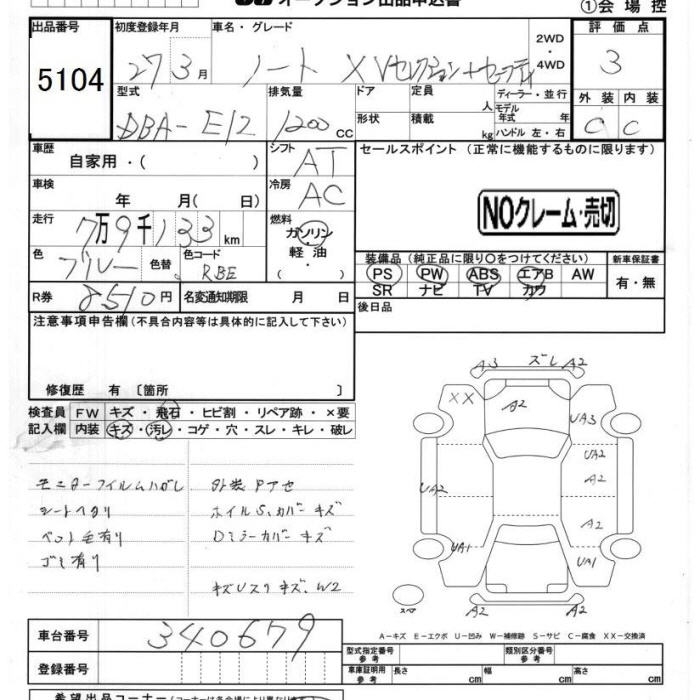 オークション出品申込書
①会場控
出品番号 初度登録年月 車名・グレード 2WD・4WD 評価点
5104 27 3月 ノート XVセレクション+セーフティ 3
型式 排気量 ドア 定員 人 ディーラー・並行 モデル年式 年 外装 内装
DBA-E12 1200 CC 形状 積載 kg ハンドル 左・右 C C
車歴 自家用・( ) シフト AT セールスポイント (正常に機能するものに限ります)
車検 年 月( 日) 冷房 AC
NOクレーム・売切
走行 7万9千133km 燃料 ガソリン・軽油・( )
色 ブルー 色替 色コード RBE
装備品(純正品に限り○をつけてください) 新車保証書
PS PW ABS エアB AW 有・無
SR ナビ TV カワ
R券 8510円 名変通知期限 月 日 後日品
注意事項申告欄(不具合内容等は具体的に記入して下さい)
修復歴 有 [箇所 ]
検査員 FW キズ・飛石・ヒビ割・リペア跡・×要
記入欄 内装 キズ・汚レ・コゲ・穴・スレ・キレ・破レ
モニターフイルムハガレ 外装Pアセ
シートヘタリ ホイルS.カバーキズ
ペット毛有り Dミラーカバーキズ
ゴミ有り
キズUスリキズ.W2
A3 ズレ A2
XX A2 UA3
UA2
A2
UA2
A2
UA1 UA1
スペア A2 A2
A-キズ E-エクボ U-凹み W-補修跡 S-サビ C-腐食 XX-交換済
車台番号 340679
型式指定番号 参考 類別区分番号 参考
登録番号 車庫証明用 参考 長さ cm 幅 cm 高さ cm
希望出品コーナー(コーナーは各会場により異なります)